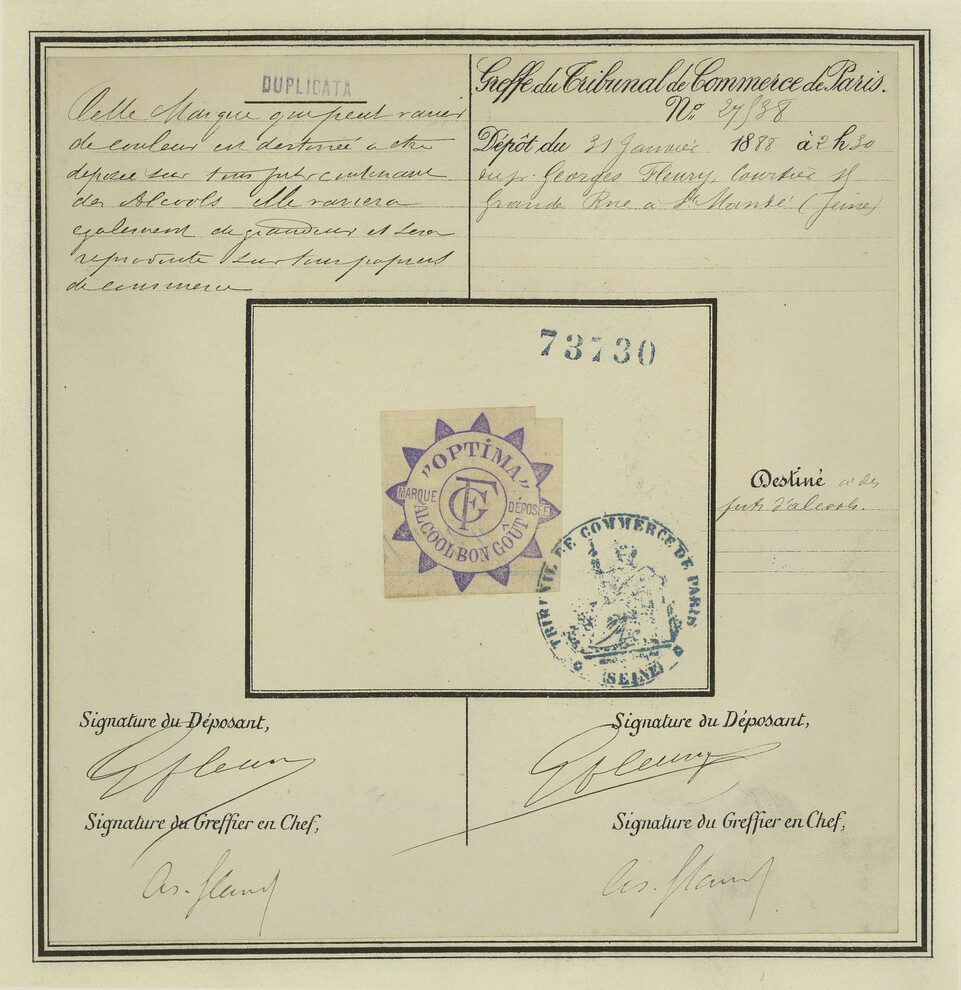 DUPLICATA
Cette Marque qui peut varier
de couleur est destinée a etre
déposée sur tous futs contenant
des Alcools elle variera
egalement de grandeur et sera
reproduite sur tous papiers
de commerce
Greffe du Tribunal de Commerce de Paris.
No. 27538
Dépôt du 31 Janvier 1888 à 2 h 30
Georges Fleury, Courtier
Grande Rue a St Mandé (Seine)
73730
"OPTIMA"
MARQUE DÉPOSÉE
GF
ALCOOL BON GOÛT
TRIBUNAL DE COMMERCE DE PARIS
(SEINE)
Destiné a des
futs d'alcools.
Signature du Déposant,
G Fleury
Signature du Greffier en Chef,
Signature du Déposant,
G Fleury
Signature du Greffier en Chef,